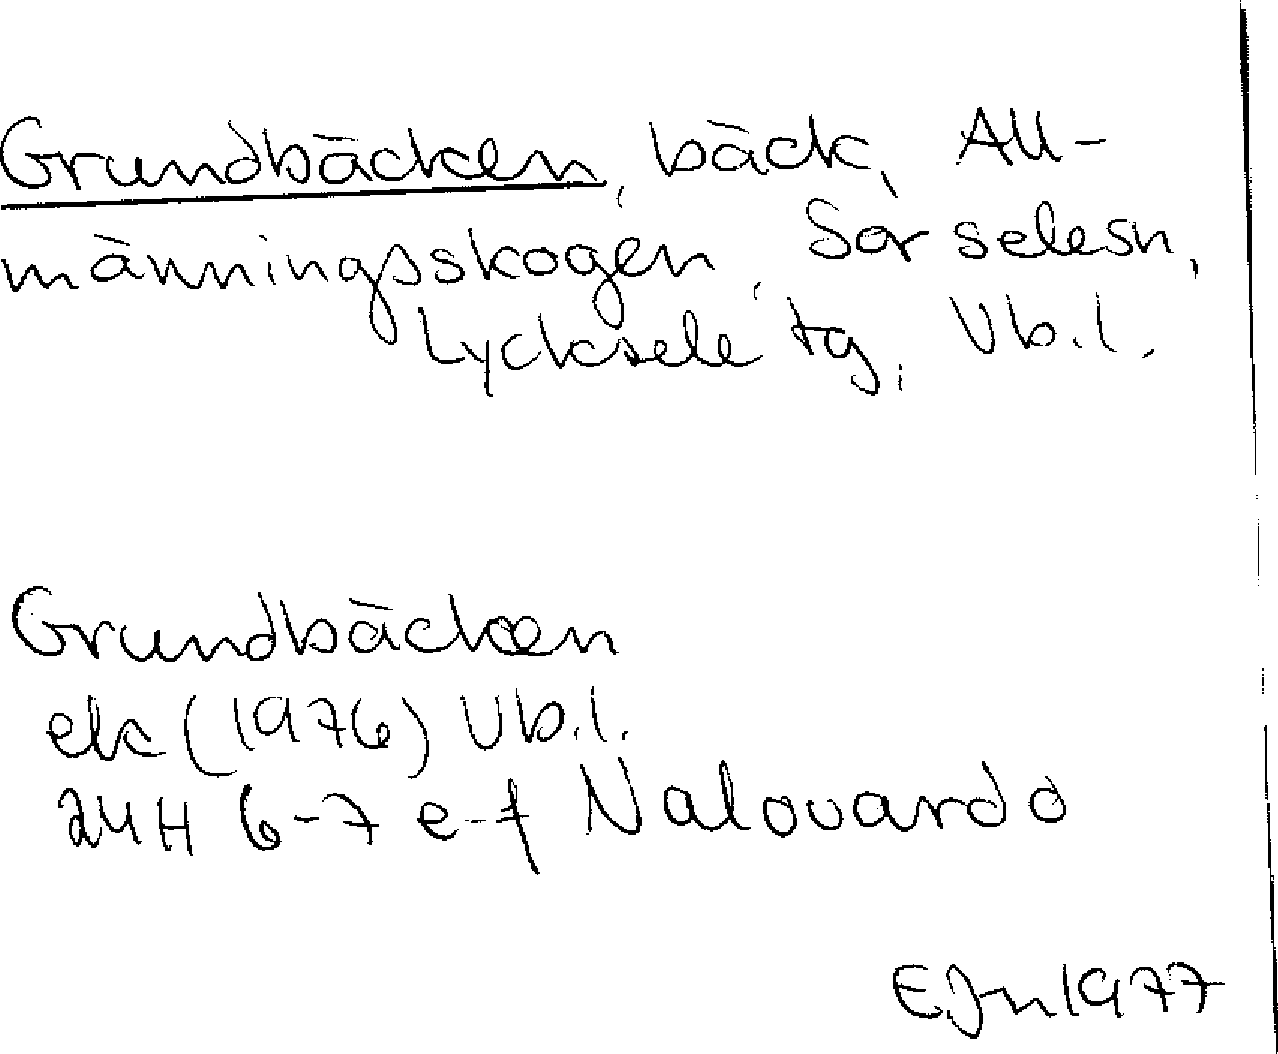 Grundbäcken, bäck, All-
männingsskogen, Sorselesn,
Lycksele tg, Vb.l.
Grundbäcken
ek (1976) Vb.l.
24H 6-7 e-f Nalovardo
EJn 1977